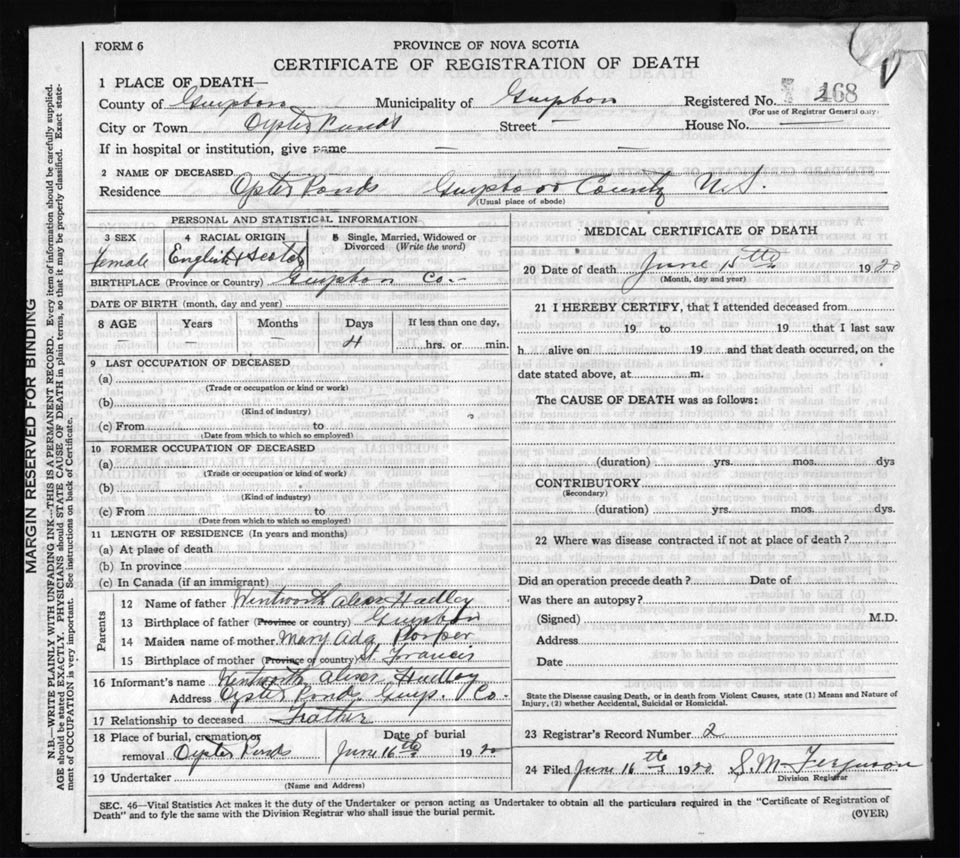 FORM 6
PROVINCE OF NOVA SCOTIA
CERTIFICATE OF REGISTRATION OF DEATH
1 PLACE OF DEATH—
County of Guysboro Municipality of Guysboro Registered No. 168
(For use of Registrar General only)
City or Town Oyster Ponds Street — House No. —
If in hospital or institution, give name — —
2 NAME OF DECEASED
Residence Oyster Ponds Guysboro County N.S.
(Usual place of abode)
PERSONAL AND STATISTICAL INFORMATION
3 SEX
female
4 RACIAL ORIGIN
English & Scotch
5 Single, Married, Widowed or Divorced (Write the word)
BIRTHPLACE (Province or Country) Guysboro Co.
DATE OF BIRTH (month, day and year)
8 AGE Years Months Days If less than one day,
— — — 4 hrs. or min.
9 LAST OCCUPATION OF DECEASED
(a)
(Trade or occupation or kind or work)
(b)
(Kind of industry)
(c) From to
(Date from which to which so employed)
10 FORMER OCCUPATION OF DECEASED
(a)
(Trade or occupation or kind of work)
(b)
(Kind of industry)
(c) From to
(Date from which to which so employed)
11 LENGTH OF RESIDENCE (In years and months)
(a) At place of death
(b) In province
(c) In Canada (if an immigrant)
Parents
12 Name of father Wentworth Hadley
13 Birthplace of father (Province or country) Guysboro
14 Maiden name of mother Mary Ada
15 Birthplace of mother (Province or country) St. Francis
16 Informant's name Wentworth Hadley
Address Oyster Ponds Guys. Co.
17 Relationship to deceased Father
18 Place of burial, cremation or removal Oyster Ponds
Date of burial
June 16th 1920
19 Undertaker
(Name and Address)
MEDICAL CERTIFICATE OF DEATH
20 Date of death June 15th 1920
(Month, day and year)
21 I HEREBY CERTIFY, that I attended deceased from
19 to 19 that I last saw
h alive on 19 and that death occurred, on the
date stated above, at m.
The CAUSE OF DEATH was as follows:
(duration) yrs. mos. dys
CONTRIBUTORY
(Secondary)
(duration) yrs. mos. dys.
22 Where was disease contracted if not at place of death?
Did an operation precede death? Date of
Was there an autopsy?
(Signed) M.D.
Address
Date
State the Disease causing Death, or in death from Violent Causes, state (1) Means and Nature of
Injury, (2) whether Accidental, Suicidal or Homicidal.
23 Registrar's Record Number 2
24 Filed June 16th 1920 S. M. Ferguson
Division Registrar
SEC. 46—Vital Statistics Act makes it the duty of the Undertaker or person acting as Undertaker to obtain all the particulars required in the "Certificate of Registration of
Death" and to fyle the same with the Division Registrar who shall issue the burial permit.
(OVER)
MARGIN RESERVED FOR BINDING
N.B.—WRITE PLAINLY WITH UNFADING INK—THIS IS A PERMANENT RECORD. Every item of information should be carefully supplied.
AGE should be stated EXACTLY. PHYSICIANS should STATE CAUSE OF DEATH in plain terms, so that it may be properly classified. Exact statement
of OCCUPATION is very important. See instructions on back of Certificate.